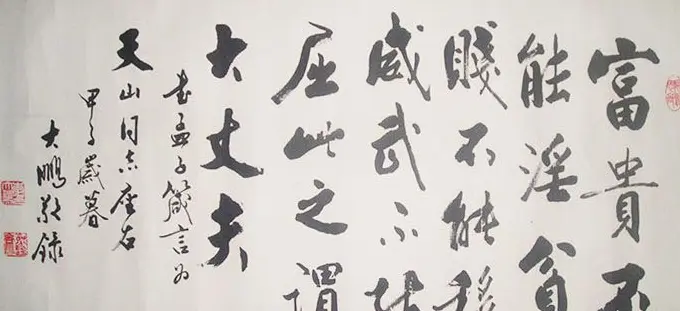 富貴不
能淫貧
賤不能移
威武不能
屈此之謂
大丈夫
書孟子箴言为
天山同志座右
甲子歲暮
大鵬敬録